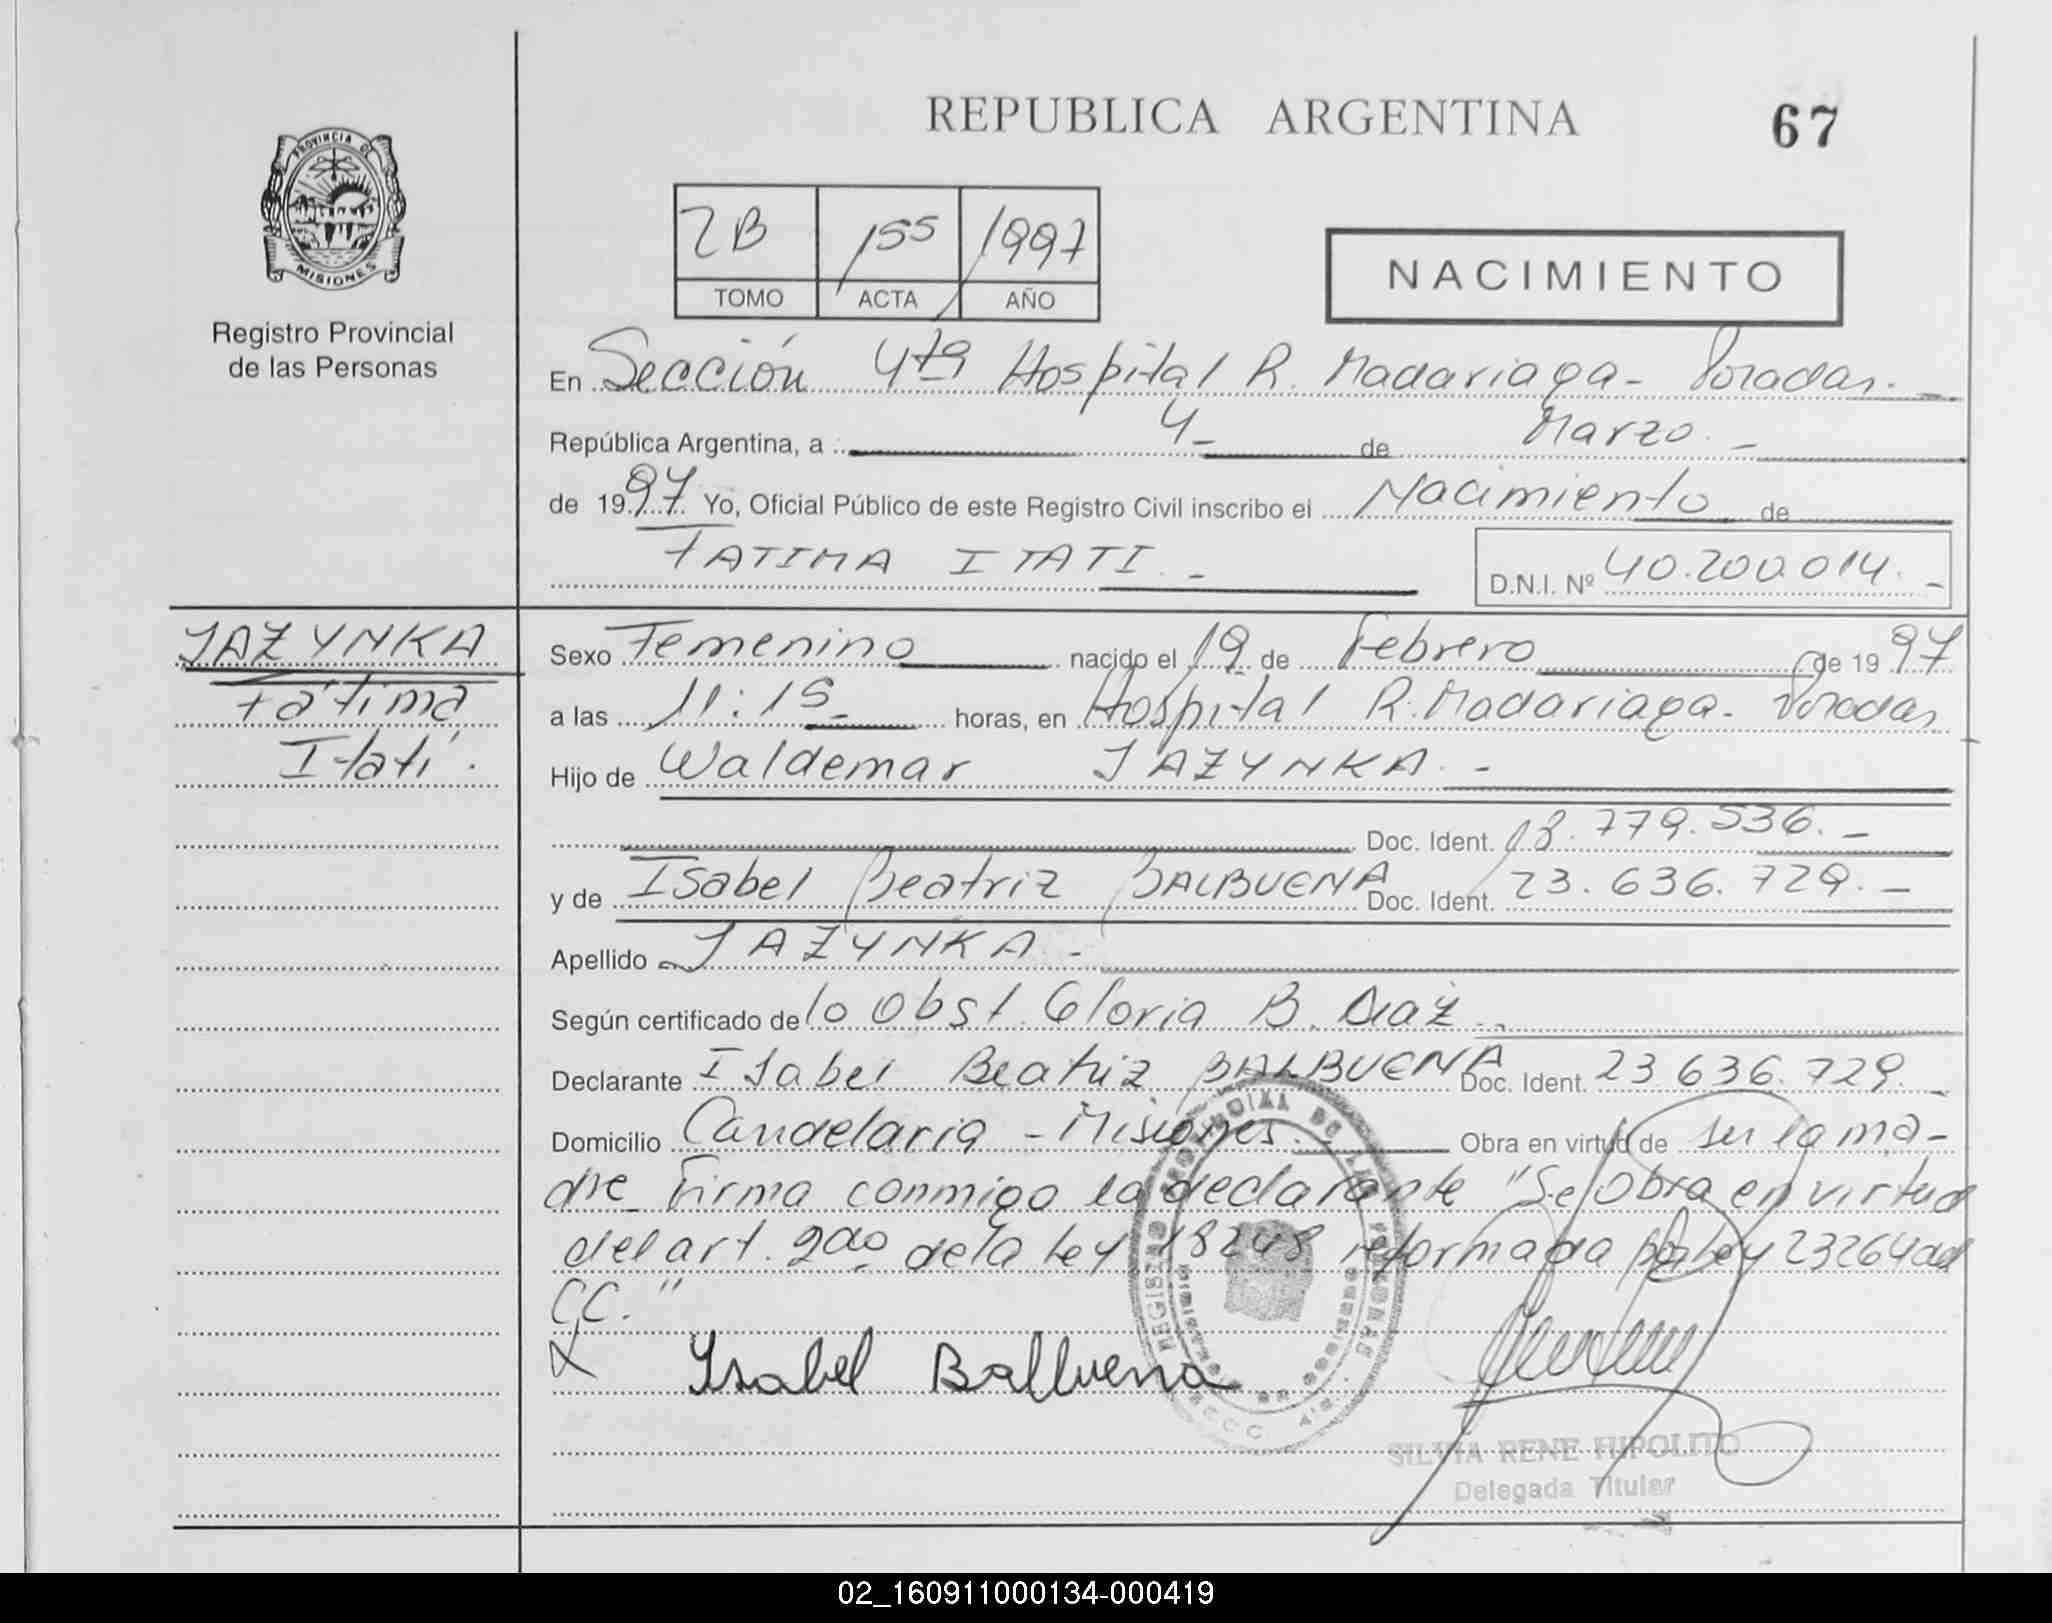 REPUBLICA ARGENTINA
67
PROVINCIA DE
MISIONES
Registro Provincial
de las Personas
2B 155 1997
TOMO ACTA AÑO
NACIMIENTO
En Sección 4ta Hospital R. Madariaga - Posadas. -
República Argentina, a : 4 - de Marzo. -
de 1997 Yo, Oficial Público de este Registro Civil inscribo el Nacimiento de
FATIMA ITATI. -
D.N.I. Nº 40.200.014. -
JAZYNKA
Fátima
Itatí.
Sexo Femenino nacido el 19 de Febrero de 1997
a las 11:15 - horas, en Hospital R. Madariaga - Posadas
Hijo de Waldemar JAZYNKA. -
Doc. Ident. 18.779.536. -
y de Isabel Beatriz BALBUENA Doc. Ident. 23.636.729. -
Apellido JAZYNKA -
Según certificado de la Obst. Gloria B. Diaz.
Declarante Isabel Beatriz BALBUENA Doc. Ident. 23.636.729. -
Domicilio Candelaria - Misiones. - Obra en virtud de ser la ma-
dre Firma conmigo la declarante "Se Obra en virtud
del art. 2do de la Ley 18248 reformada por Ley 23264 del
CC."
X Isabel Balbuena
REGISTRO PROVINCIAL DE LAS PERSONAS
SILVIA RENE HIPOLITO
Delegada Titular
02_160911000134-000419